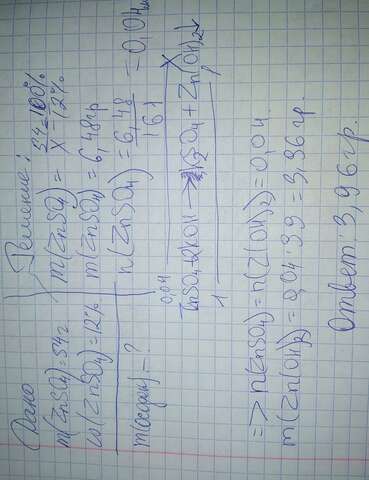 Дано
m(ZnSO4)=54г
ω(ZnSO4)=12%
m(осадка)=?
Решение:
m(ZnSO4)= 54=100%
X=12%
m(ZnSO4)=6,48гр
n(ZnSO4)=6,48/161=0,04м
0,04 X
ZnSO4+2KOH→K2SO4+Zn(OH)2↓
1 1
=> n(ZnSO4)=n(Z(OH)2)=0,04.
m(Zn(OH)2)=0,04·99=3,96гр.
Ответ: 3,96гр.